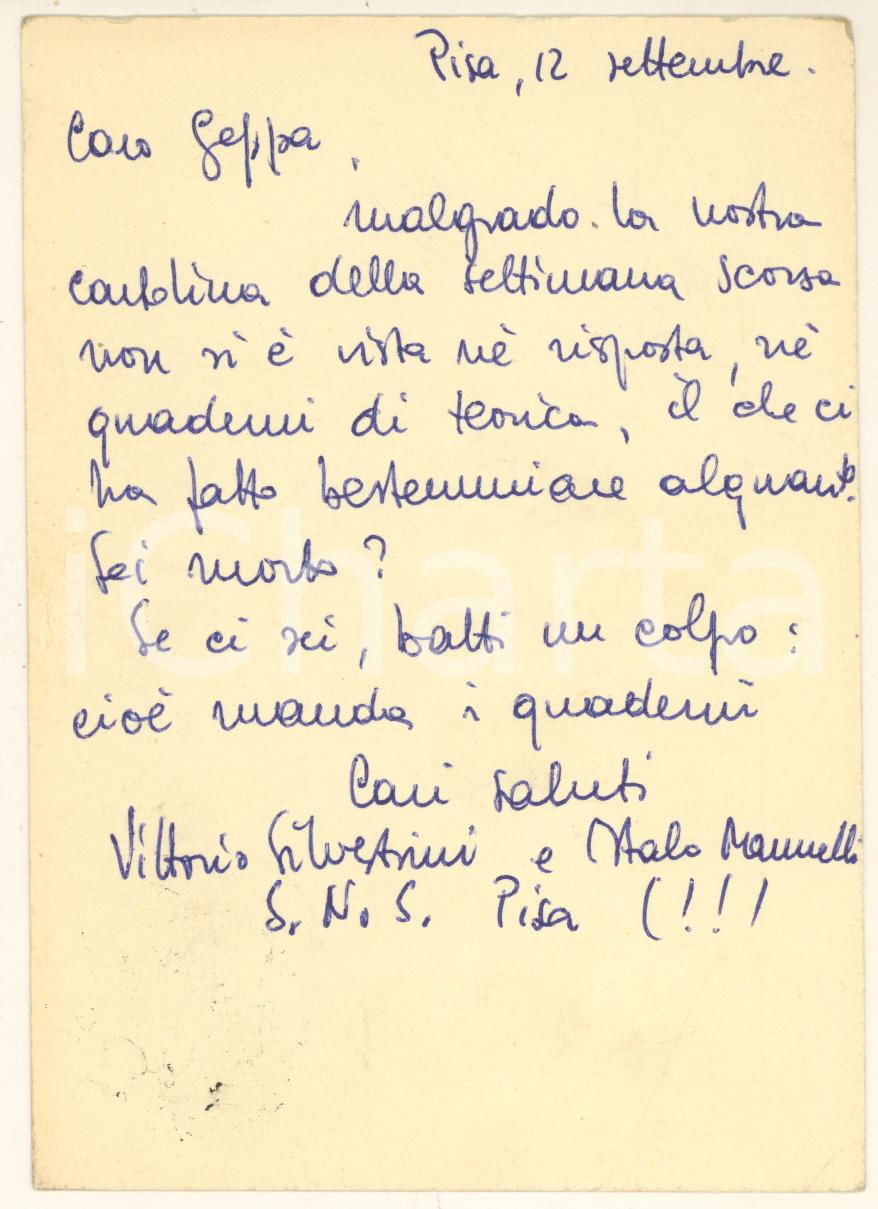 Pisa, 12 settembre.
Caro Geppa,
malgrado la nostra
cartolina della settimana scorsa
non si è vista nè risposta, nè
quaderni di teorica, il che ci
ha fatto bestemmiare alquanto.
Sei morto?
Se ci sei, batti un colpo:
cioè manda i quaderni
Cari saluti
Vittorio Silvestrini e Italo Mannelli
S.N.S. Pisa (!!!
iCharta